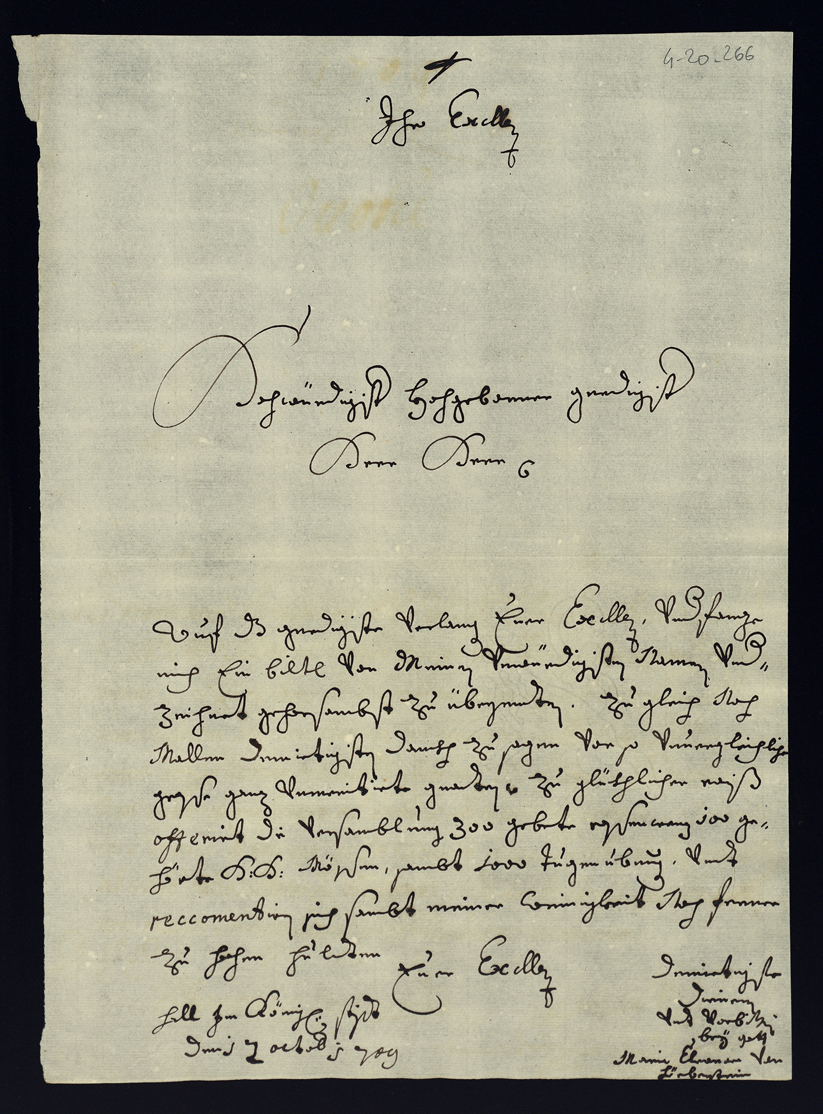 4-20-266
Ihr Excellenz
Hochwürdigist Hochgeborner gnedigist
Herr Herr
Auf dß gnedigiste Verlang Euer Excellenz, Undfange
mich Ein bittl Von Meinen Unwürdigisten Namen Und
Zeichnet gehorsambst Zu überßenden. Zu gleich Noch
Mallen demietigisten danckh Zu sagen Vor so Unvergleichliche
grosse ganz Unmeritirte gnaden, Zu glückhlicher raiß
offerirt die Versamblung 300 gebete 100 ge-
hörte H: H: Mössen, sambt 1000 Tugenübung. Undt
reccomentiren sich sambt meiner Weinigkeit Noch ferner
Zu hohen hulden
Euer Excellenz
demietigiste
Dienerin
Und Vorbitterin
bey gott
Maria Eleonora Von
hall Im König stifft
den 7 octob 709